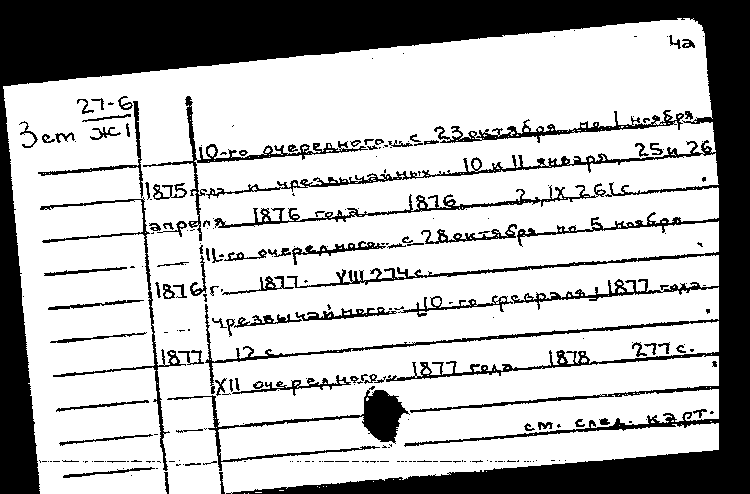 4а
27-6
3 ст ЖI
10-го очередного... с 23 октября по 1 ноября
1875 года и чрезвычайных... 10 и 11 января, 25 и 26
апреля 1876 года. 1876. 2, IX, 261 с.
11-го очередного... с 28 октября по 5 ноября
1876 г. 1877. VIII, 274 с.
чрезвычайного... 10-го февраля 1877 года.
1877. 12 с.
XII очередного... 1877 года. 1878. 277 с.
см. след. карт.